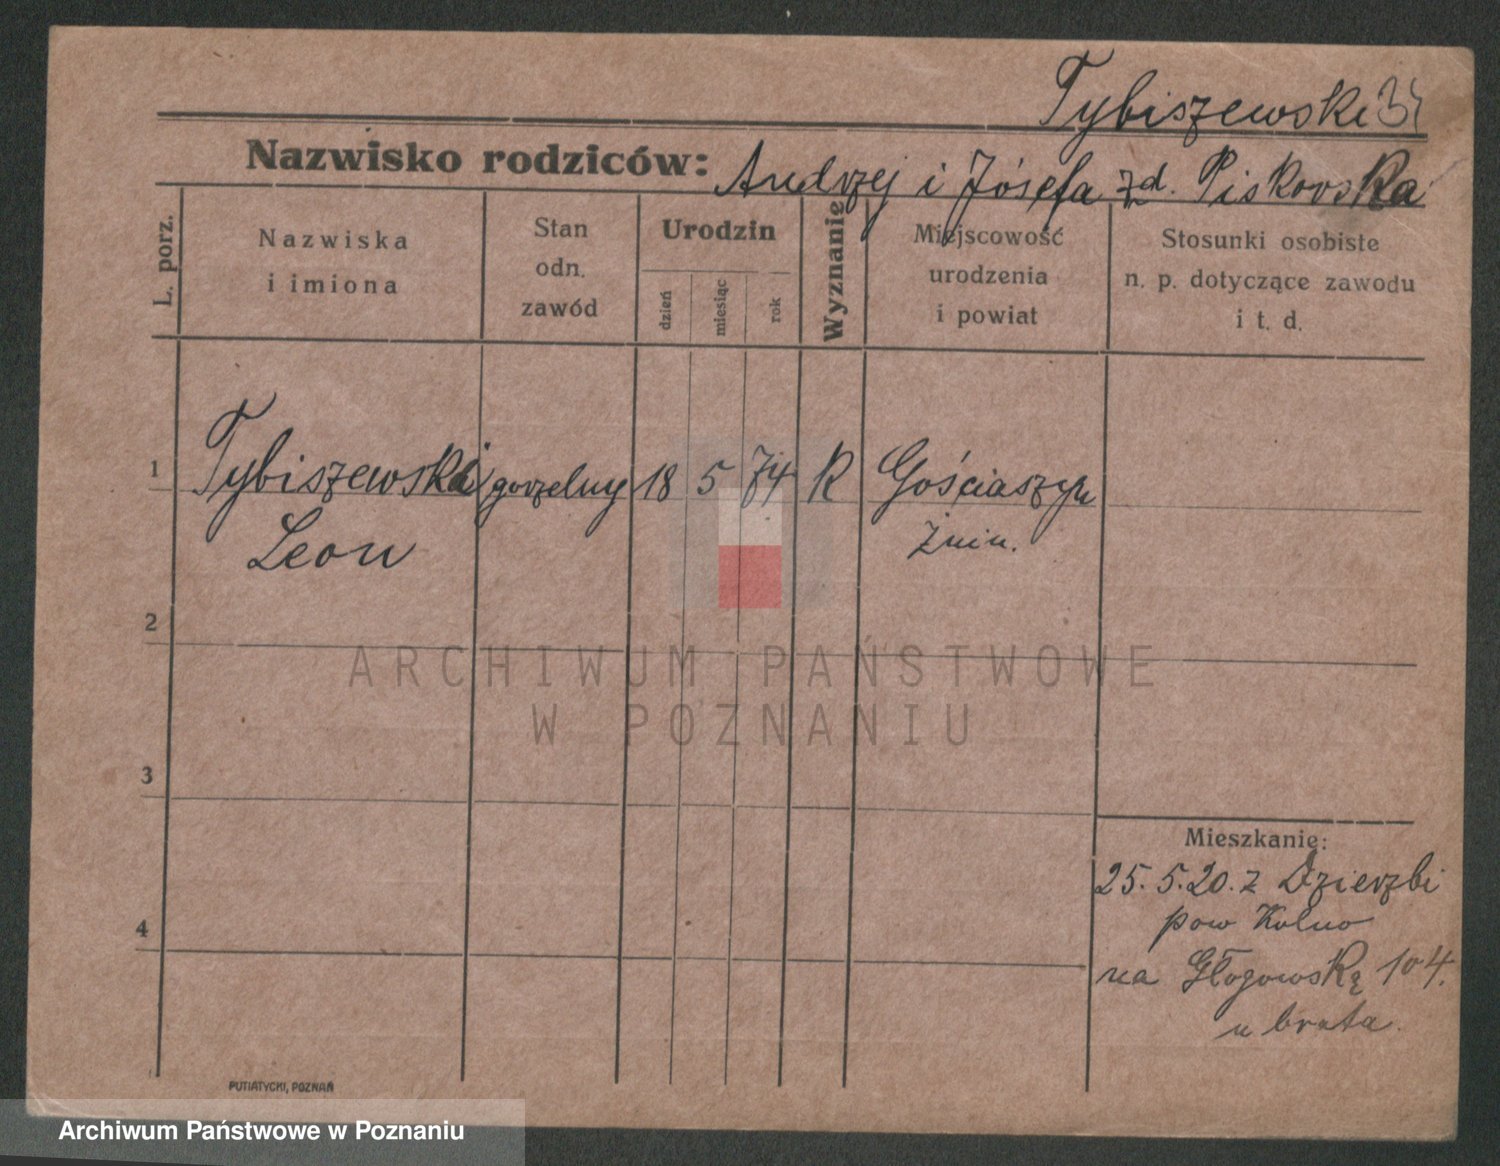 Tybiszewski 34
Nazwisko rodziców: Andrzej i Józefa zd. Piskorska
L. porz.
Nazwiska
i imiona
Stan
odn.
zawód
Urodzin
dzień
miesiąc
rok
Wyznanie
Miejscowość
urodzenia
i powiat
Stosunki osobiste
n. p. dotyczące zawodu
i t. d.
1 Tybiszewski gorzelny 18 5 74 R Gościaszyn
Leon Żnin.
2
ARCHIWUM PAŃSTWOWE
W POZNANIU
3
Mieszkanie:
25.5.20. z Dzierzbi
pow Kolno
4
na Głogowską 104.
u brata.
PUTIATYCKI, POZNAŃ
Archiwum Państwowe w Poznaniu